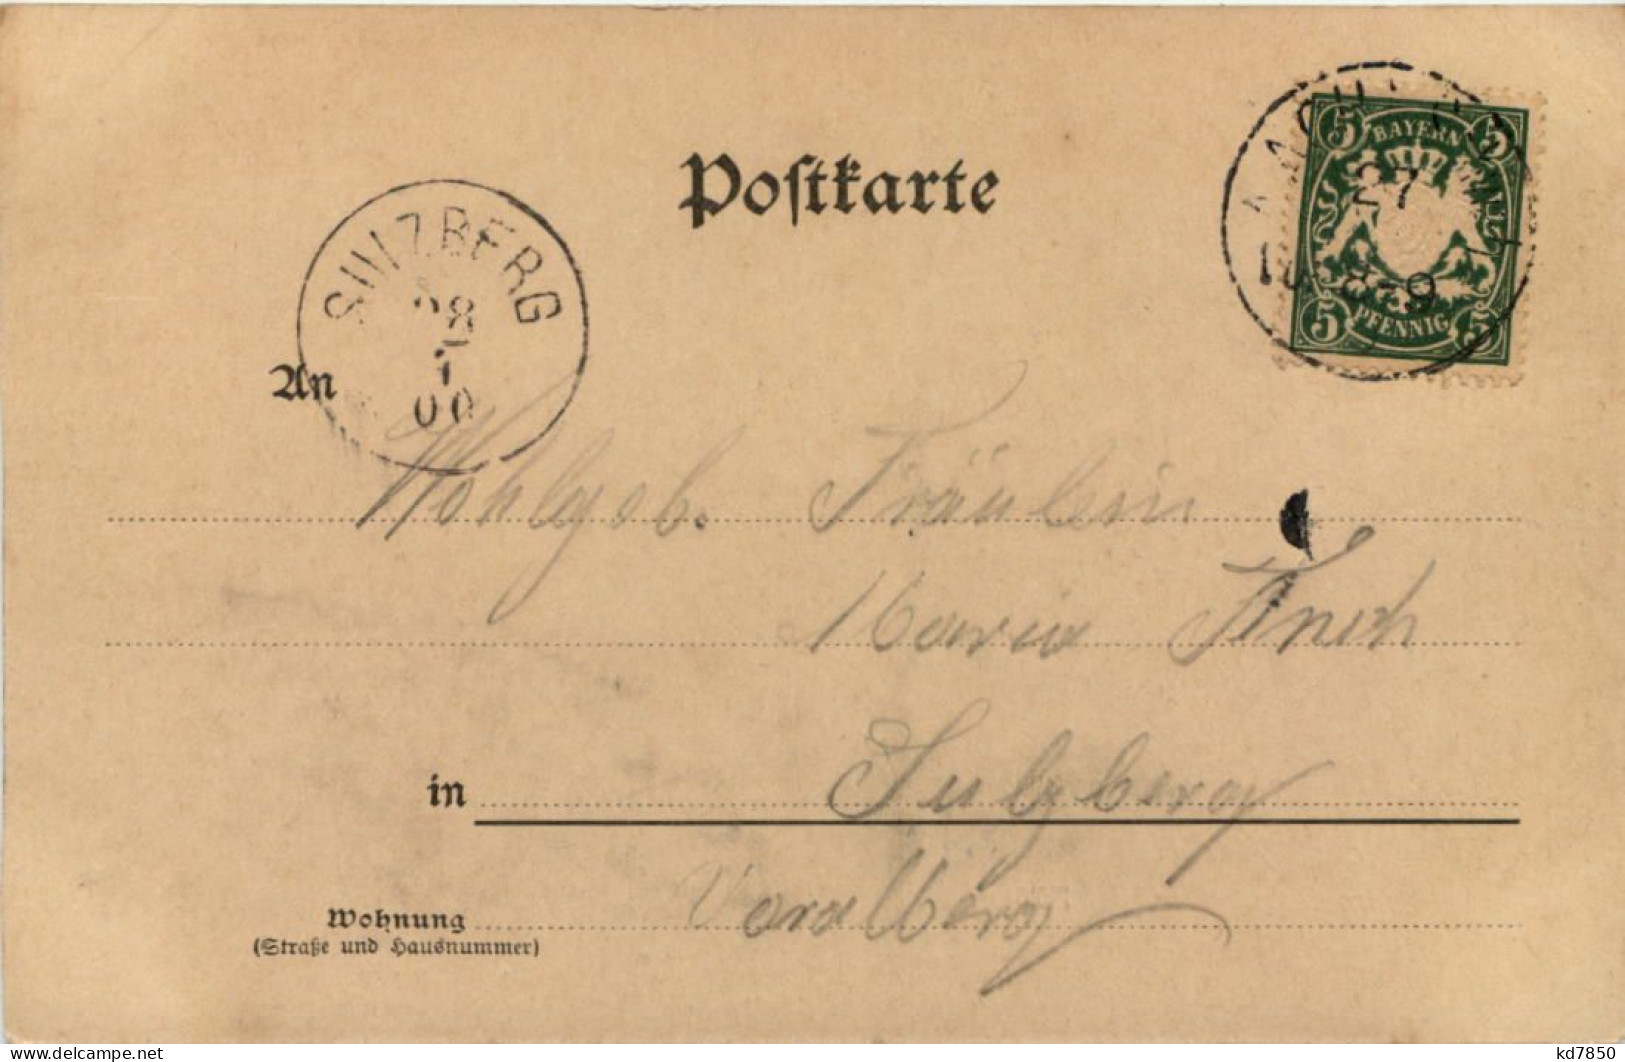 Postkarte
BAYERN
5 5
27
8-9
5 PFENNIG 5
SULZBERG
28
7
00
An
Wohlgeb. Fräulein
Maria
in Sulzberg
Wohnung Voralberg
(Straße und Hausnummer)
kd7850